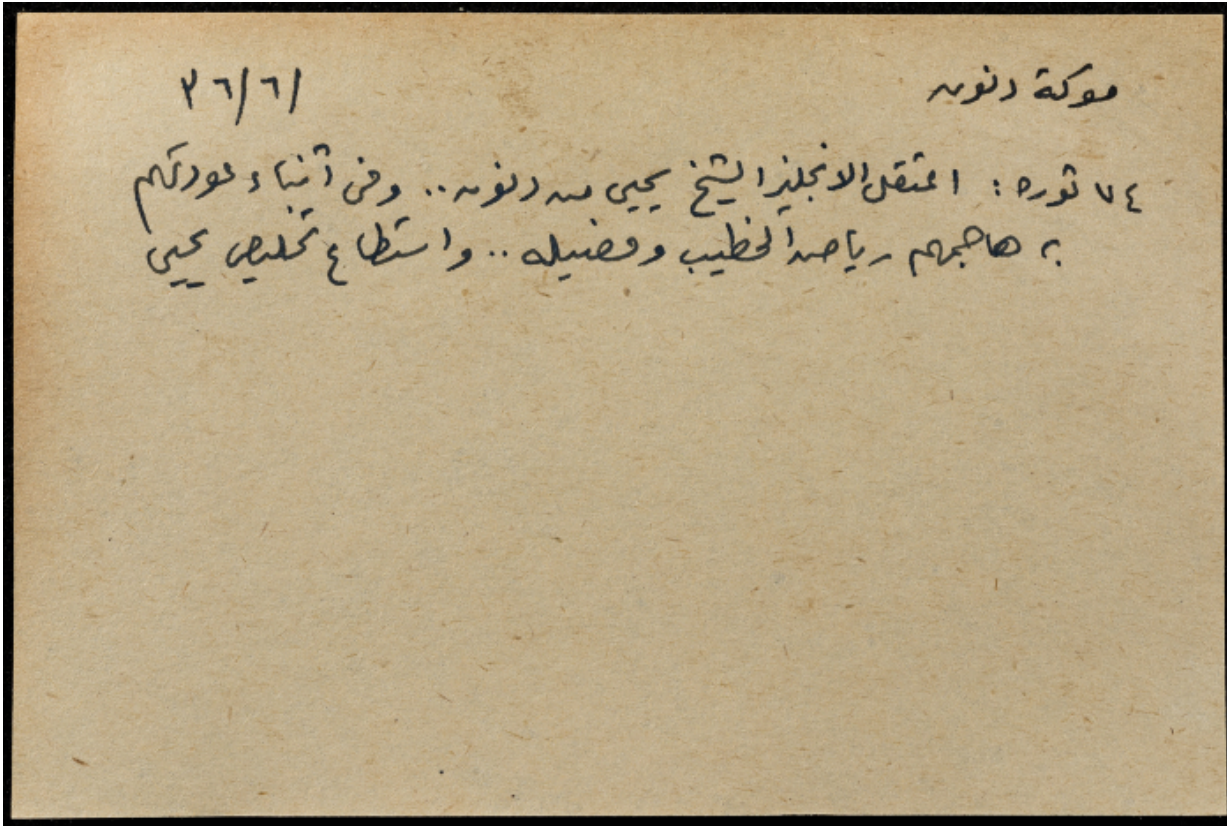 معركة دنون
٣٦/٦/١
٧٤ ثورة: اعتقل الانجليز الشيخ يحيى من دنون.. وفي أثناء عودتهم
به هاجمهم رياض الخطيب وفصيله.. واستطاع تخليص يحيى